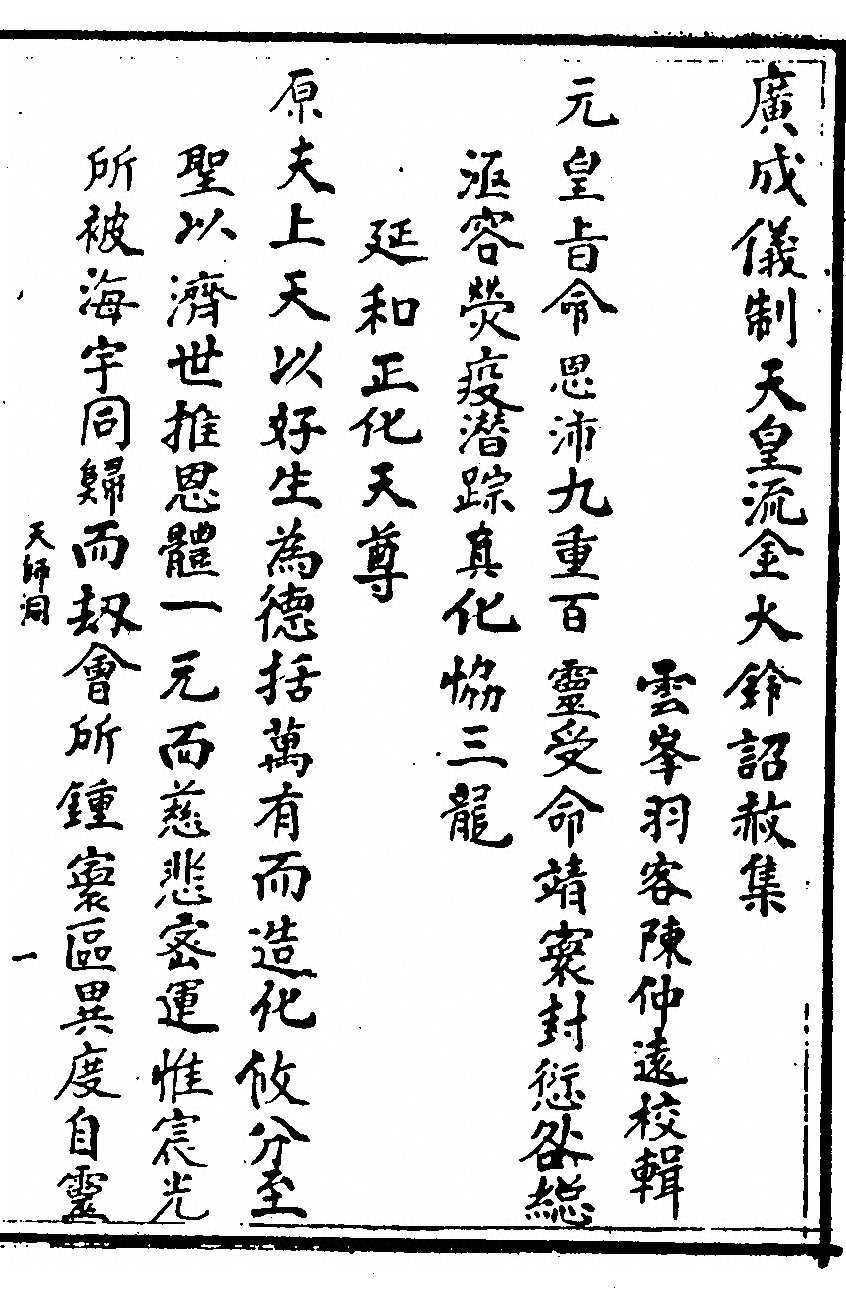 廣成儀制天皇流金火鈴詔赦集
雲峯羽客陳仲遠校輯
元皇旨命恩沛九重百靈受命靖寰封愆欲總
涵容熒疫潛踪真化恊三龍
延和正化天尊
原夫上天以好生為德括萬有而造化攸分至
聖以濟世推恩體一元而慈悲密運惟宸光
所被海宇同歸而劫會所鍾寰區異度自靈
天師洞
一